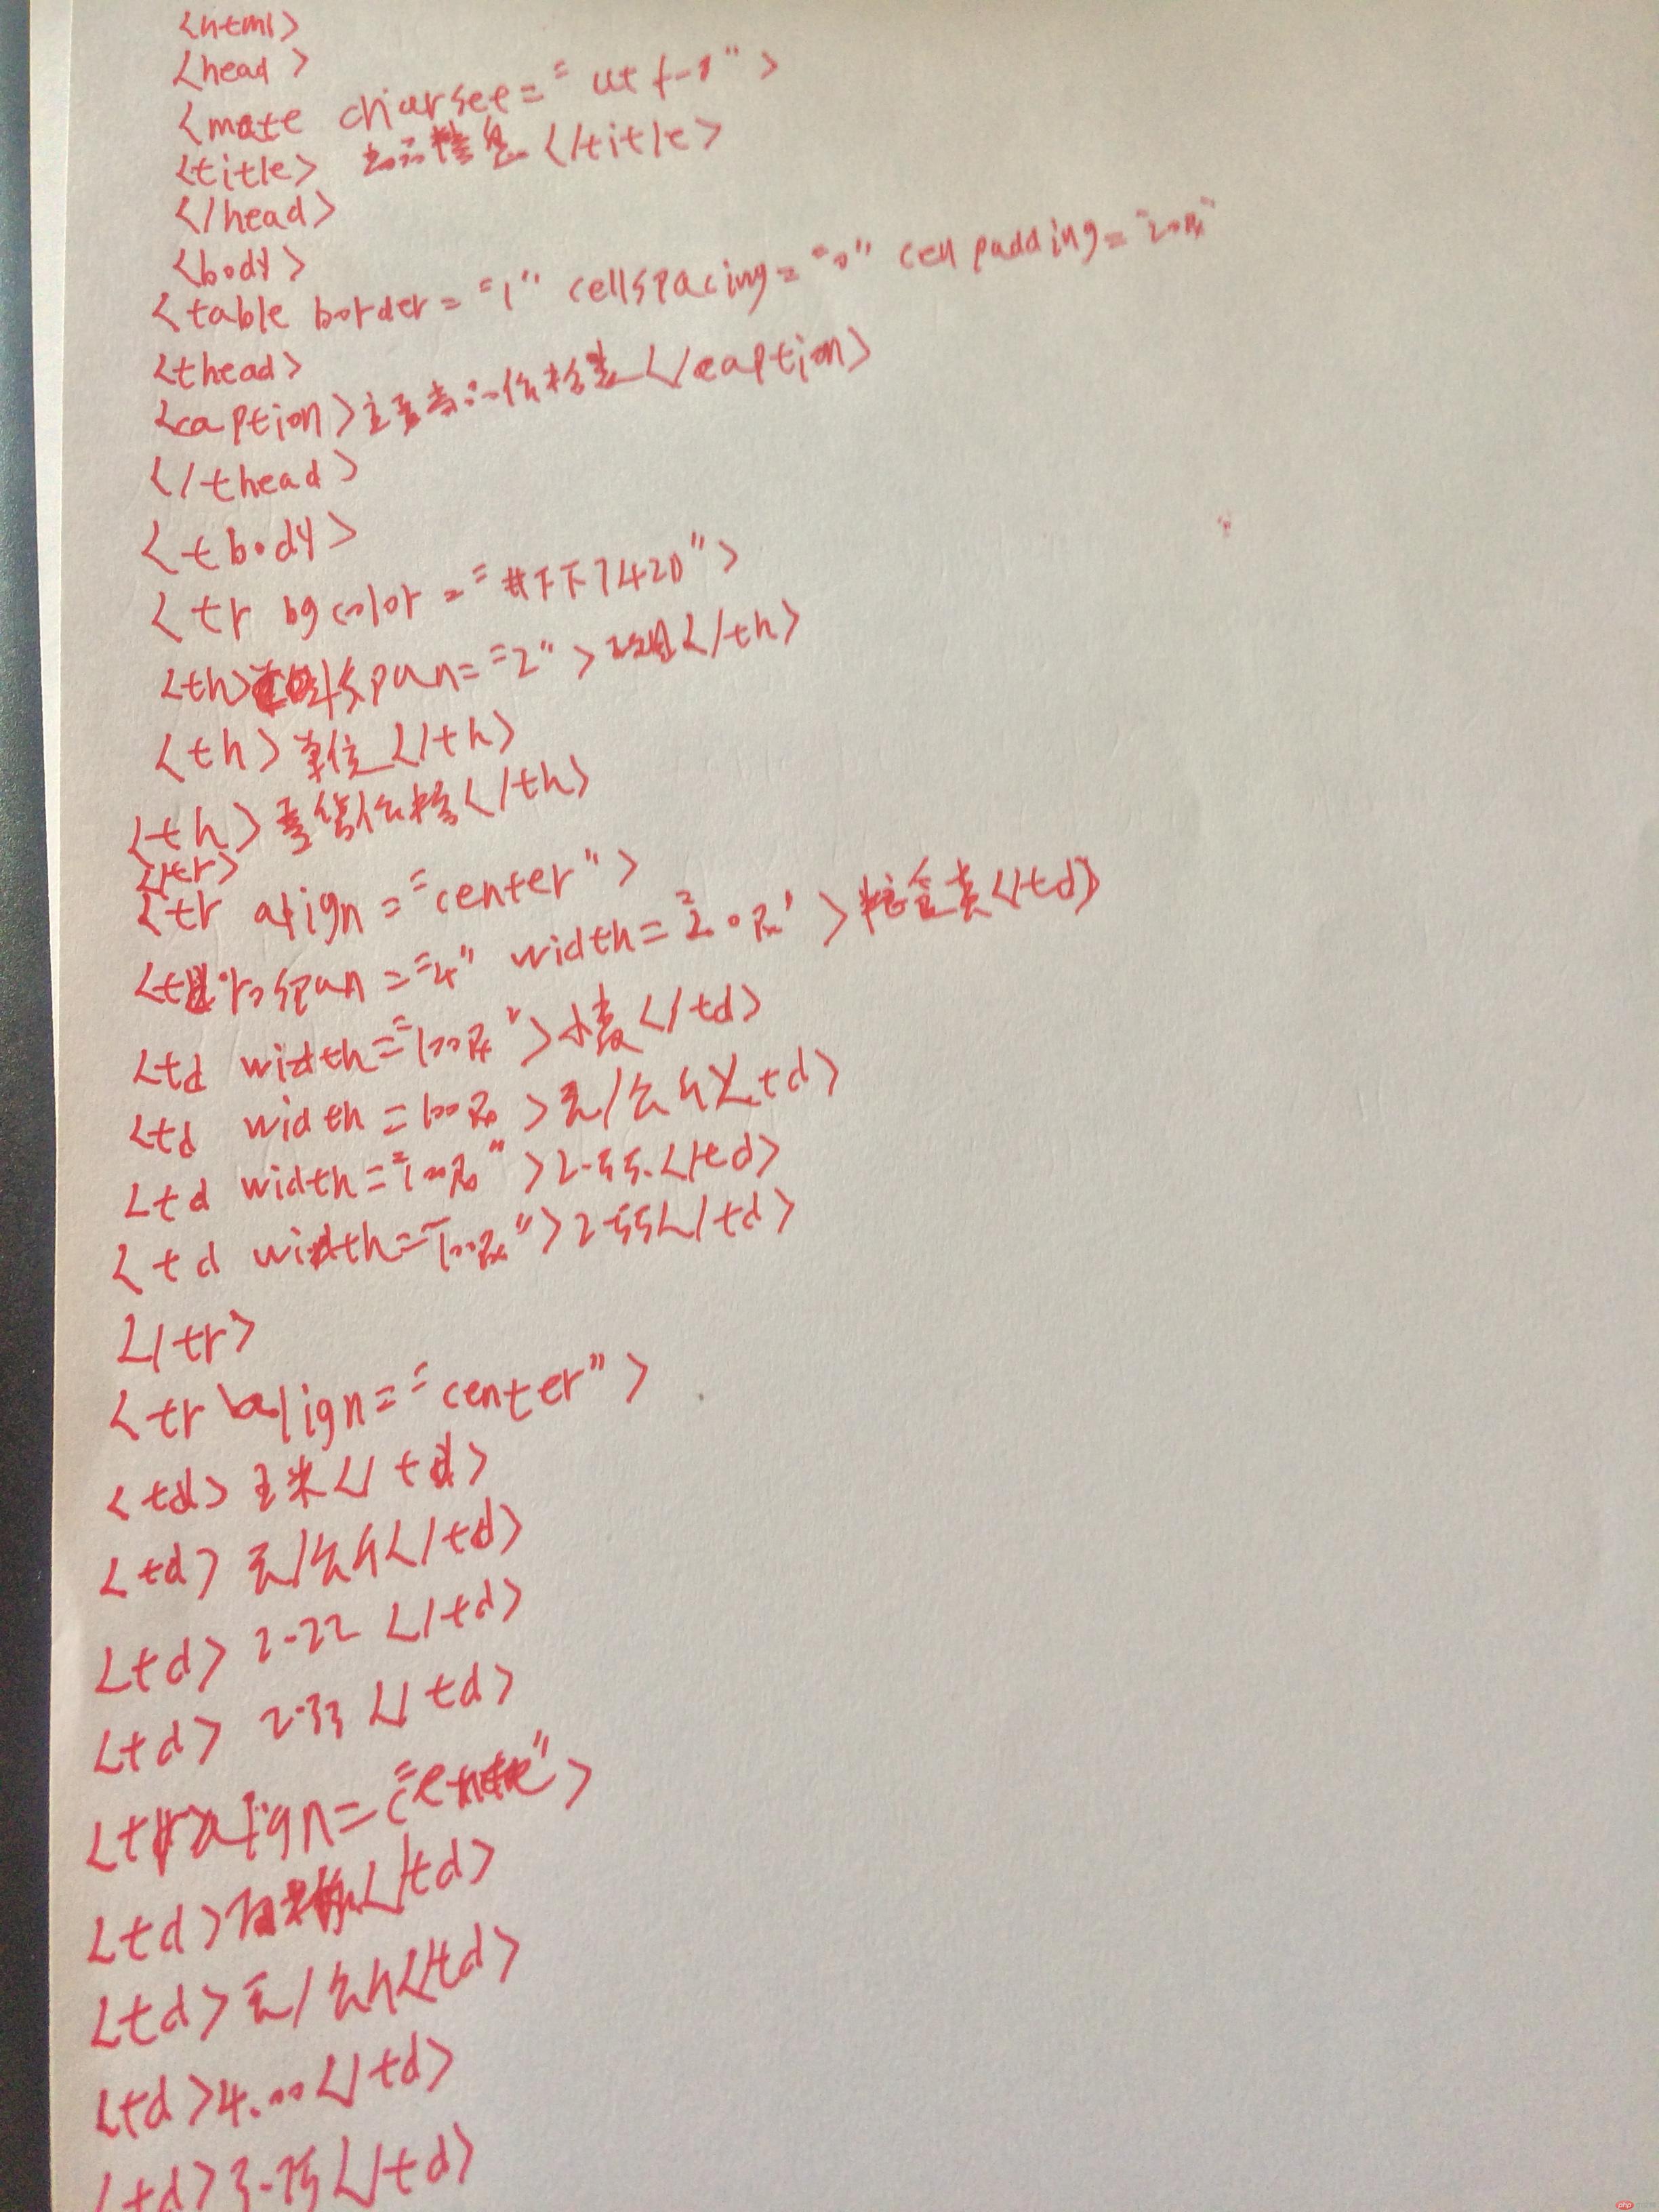 <html>
<head>
<mate charset="utf-8">
<title> </title>
</head>
<body>
<table border="1" cellspacing="0" cellpadding="20px"
<thead>
<caption>主要 价格 </caption>
</thead>
<tbody>
<tr bgcolor="#FF7420">
<th span="2"> </th>
<th>单位</th>
<th> 价格</th>
</tr>
<tr align="center">
<td rospan="4" width="20px">粮食类</td>
<td width="100px">小麦</td>
<td width=100px>元/公斤</td>
<td width="100px">2.55.</td>
<td width="100px">2.55</td>
</tr>
<tr align="center">
<td>玉米</td>
<td>元/公斤</td>
<td>2.22</td>
<td>2.33</td>
<tr align="cente">
<td> </td>
<td>元/公斤</td>
<td>4.00</td>
<td>3.75</td>
php